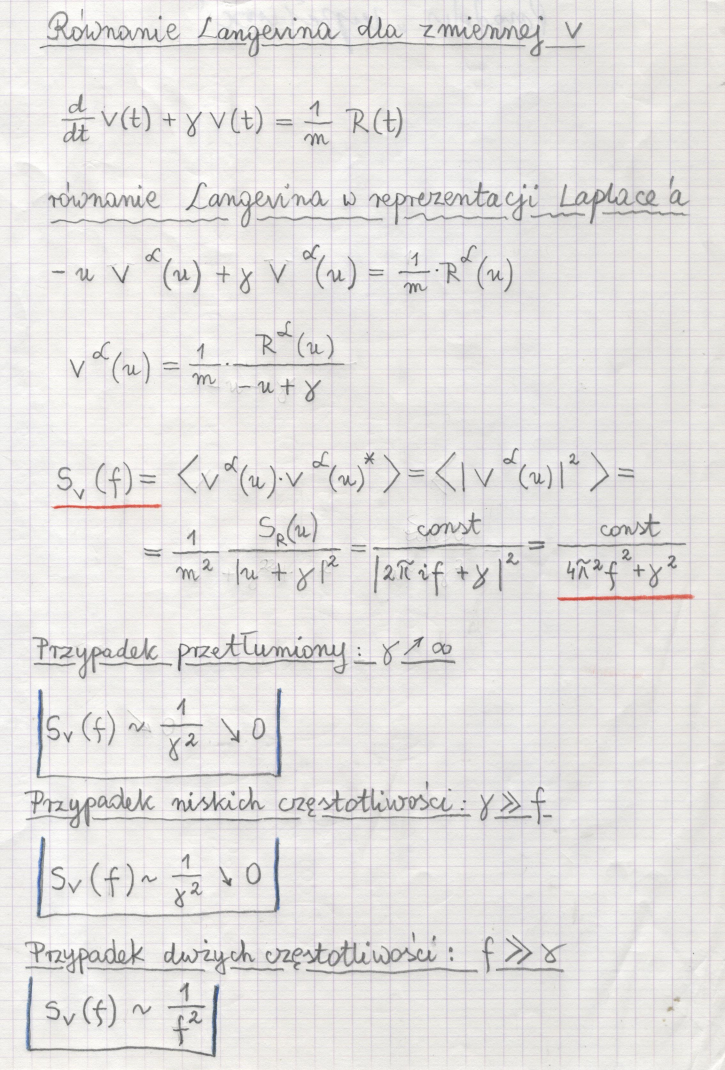 Równanie Langevina dla zmiennej v
d/dt v(t) + γ v(t) = 1/m R(t)
równanie Langevina w reprezentacji Laplace'a
- u v^ℒ(u) + γ v^ℒ(u) = 1/m · R^ℒ(u)
v^ℒ(u) = 1/m · R^ℒ(u) / (-u + γ)
S_v(f) = ⟨v^ℒ(u) · v^ℒ(u)*⟩ = ⟨|v^ℒ(u)|²⟩ =
= 1/m² S_R(u) / |u + γ|² = const / |2πif + γ|² = const / (4π²f² + γ²)
Przypadek przetłumiony: γ ↗ ∞
S_v(f) ~ 1/γ² ↘ 0
Przypadek niskich częstotliwości: γ ≫ f
S_v(f) ~ 1/γ² ↘ 0
Przypadek dużych częstotliwości: f ≫ γ
S_v(f) ~ 1/f²